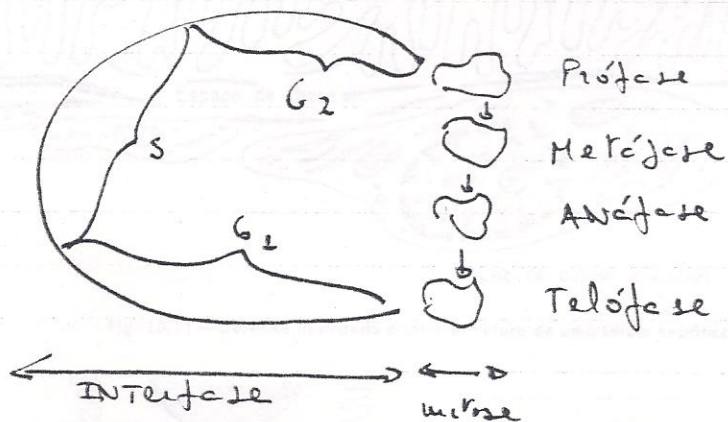 G2
Prófase
S
Metáfase
G1
Anáfase
Telófase
Interfase
mitose